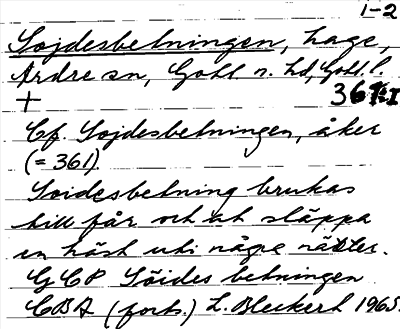 1-2
Sojdesbetningen, hage,
Ardre sn, Gotl n. hd, Gotl. l.
+ 361:I
Cf. Sojdesbetningen, åker
(= 361)
Soidesbetning brukas
till får och at släppa
en häst uti någre nätter.
GCP Söides betningen
CBA (forts.) L. Bleckert 1965.